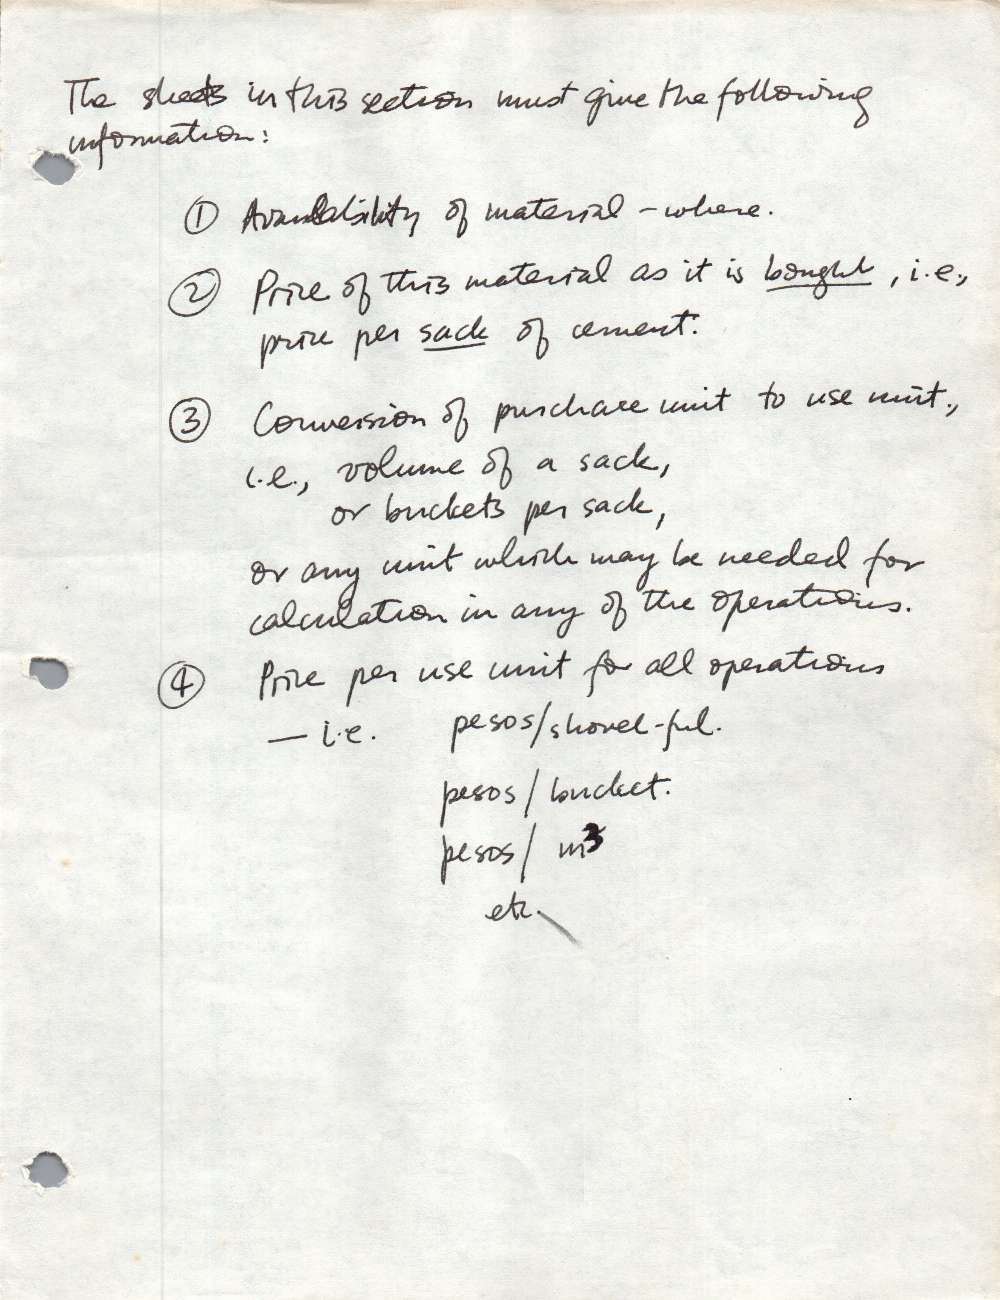 The sheets in this section must give the following
information:
① Availability of material - where.
② Price of this material as it is bought, i.e.,
price per sack of cement.
③ Conversion of purchase unit to use unit.,
i.e., volume of a sack,
or buckets per sack,
or any unit which may be needed for
calculation in any of the operations.
④ Price per use unit for all operations
— i.e. pesos/shovel-ful.
pesos/bucket.
pesos/m³
etc.